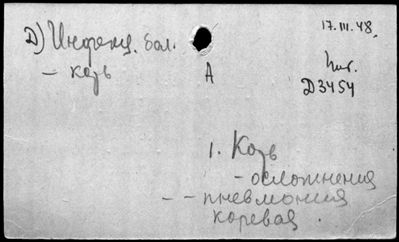 Д) Инфекц. бол. 17.III.48.
- корь
А
Д3454
1. Корь
- осложнения
- - пневмония
коревая.